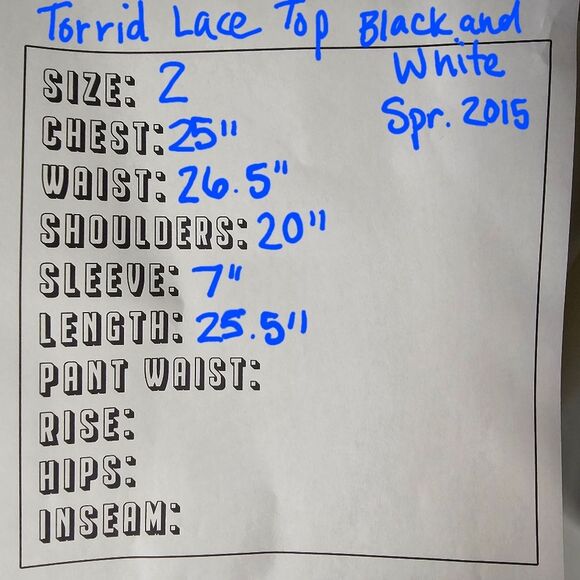 Torrid Lace Top Black and
White
Spr. 2015
SIZE: 2
CHEST: 25"
WAIST: 26.5"
SHOULDERS: 20"
SLEEVE: 7"
LENGTH: 25.5"
PANT WAIST:
RISE:
HIPS:
INSEAM: